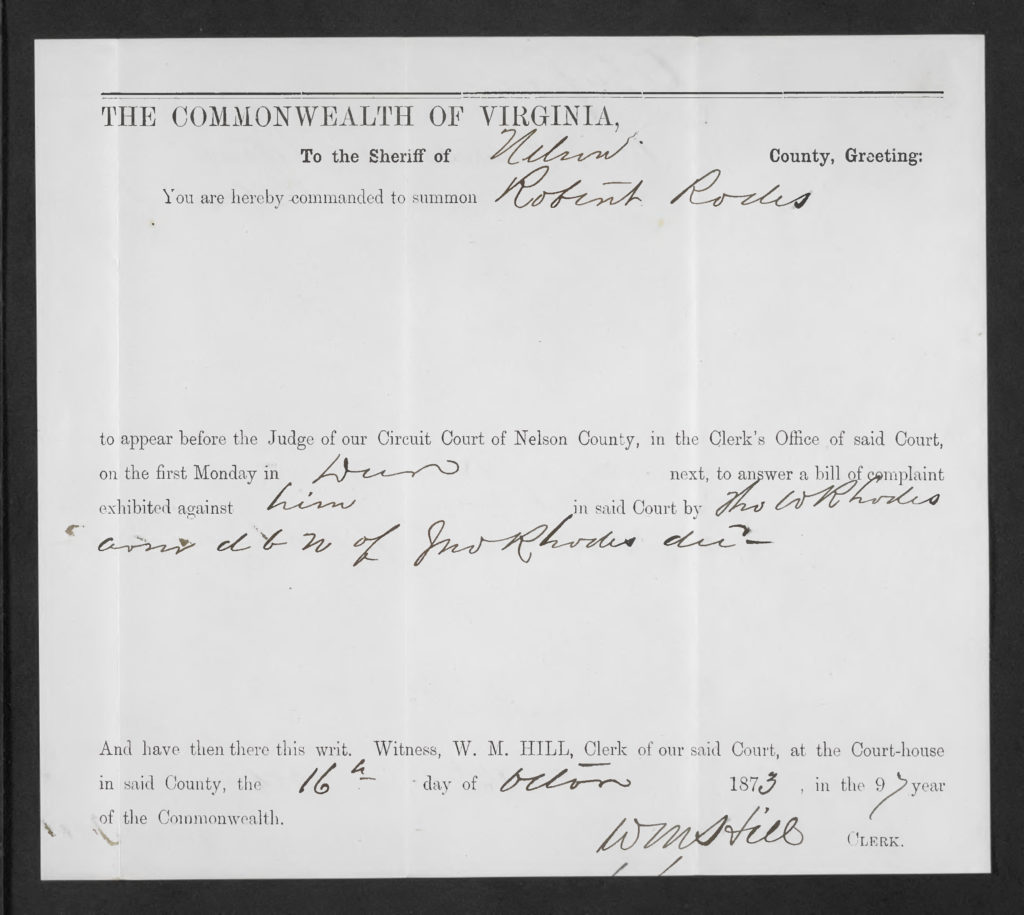 THE COMMONWEALTH OF VIRGINIA,
To the Sheriff of Nelson County, Greeting:
You are hereby commanded to summon Robert Rodes
to appear before the Judge of our Circuit Court of Nelson County, in the Clerk's Office of said Court,
on the first Monday in next, to answer a bill of complaint
exhibited against him in said Court by Tho W Rhodes
d b n of Jno Rhodes decd
And have then there this writ. Witness, W. M. HILL, Clerk of our said Court, at the Court-house
in said County, the 16th day of Octor 1873, in the 97 year
of the Commonwealth.
W M Hill CLERK.